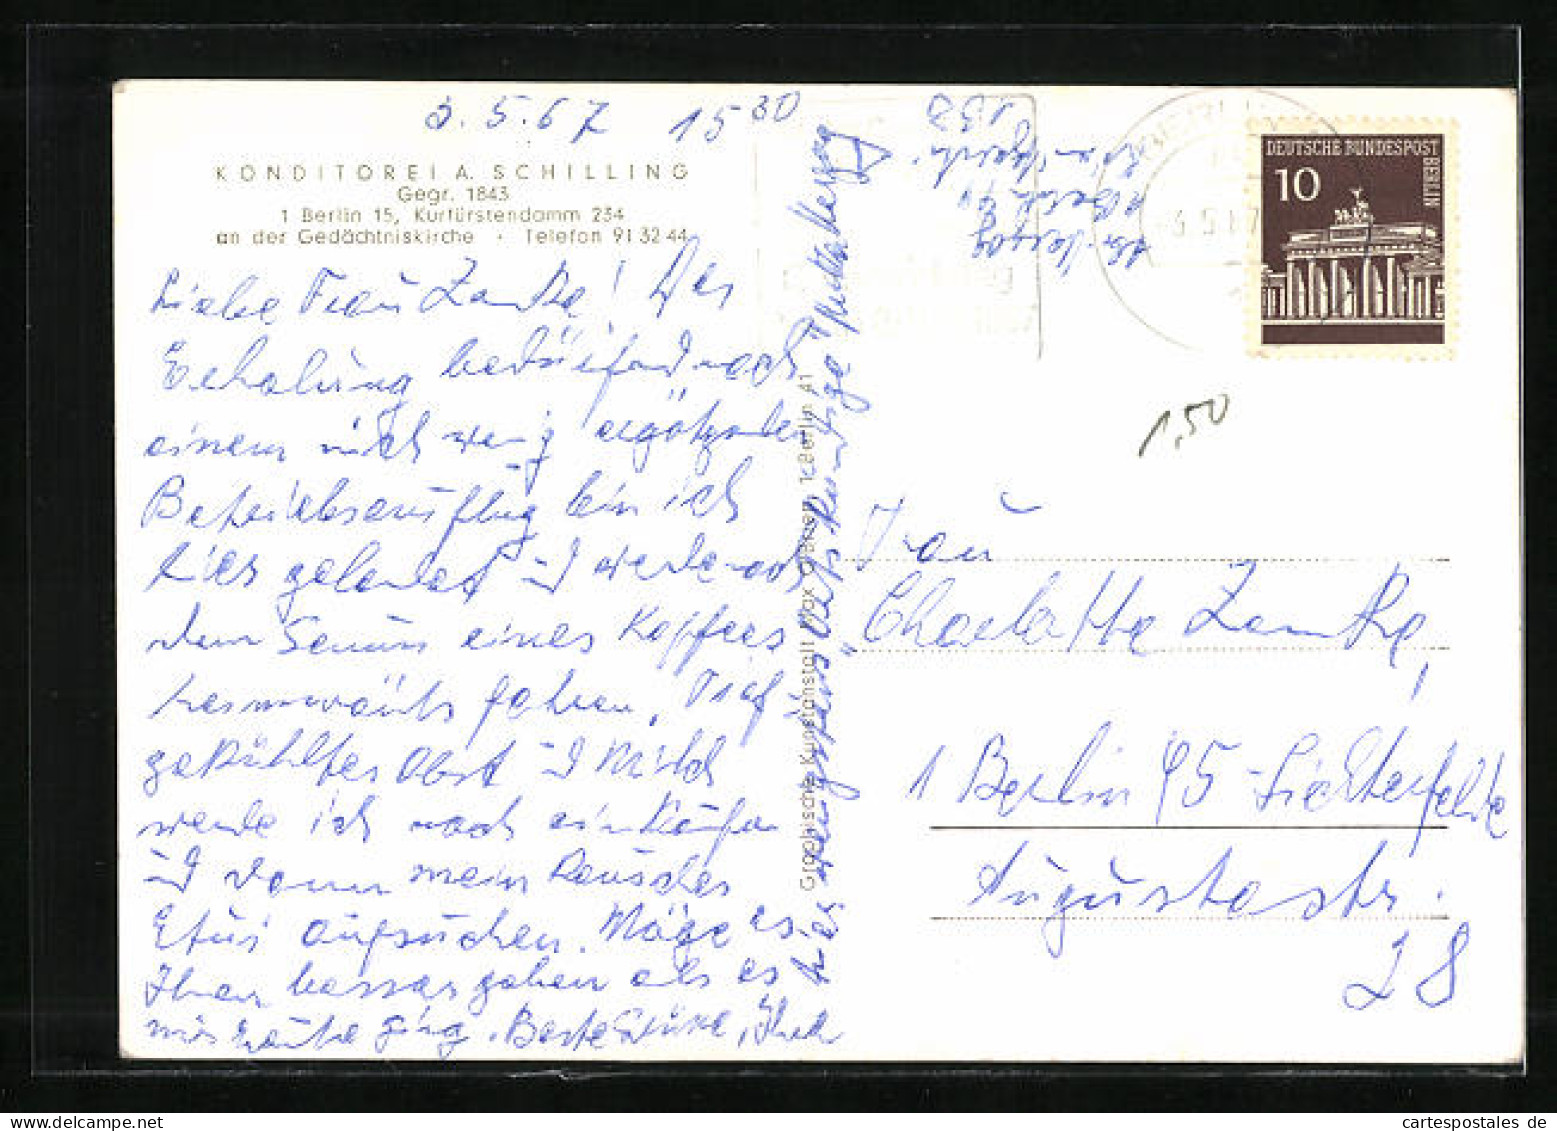 3.5.67 15 30
KONDITOREI A. SCHILLING
Gegr. 1843
1 Berlin 15, Kurfürstendamm 234
an der Gedächtniskirche · Telefon 91 32 44
Liebe Frau Zanke! Der
Erholung bedürfend nach
einem nicht wenig ergötzenden
Betriebsausflug bin ich
hier gelandet und werde nach
dem Genuss eines Kaffees
heimwärts fahren. Tief-
gekühltes Obst und Milch
werde ich noch einkaufen
und dann mein
Etui aufsuchen. Möge es
Ihnen besser gehen als es
mir heute ging. Beste Grüße, Ihr
Graphische Kunstanstalt Max Krämer, 1 Berlin 41
DEUTSCHE BUNDESPOST
BERLIN
10
1,50
Frau
Charlotte Zanke,
1 Berlin 45-Lichterfelde
Augustastr.
28
cartespostales.de
www.delcampe.net